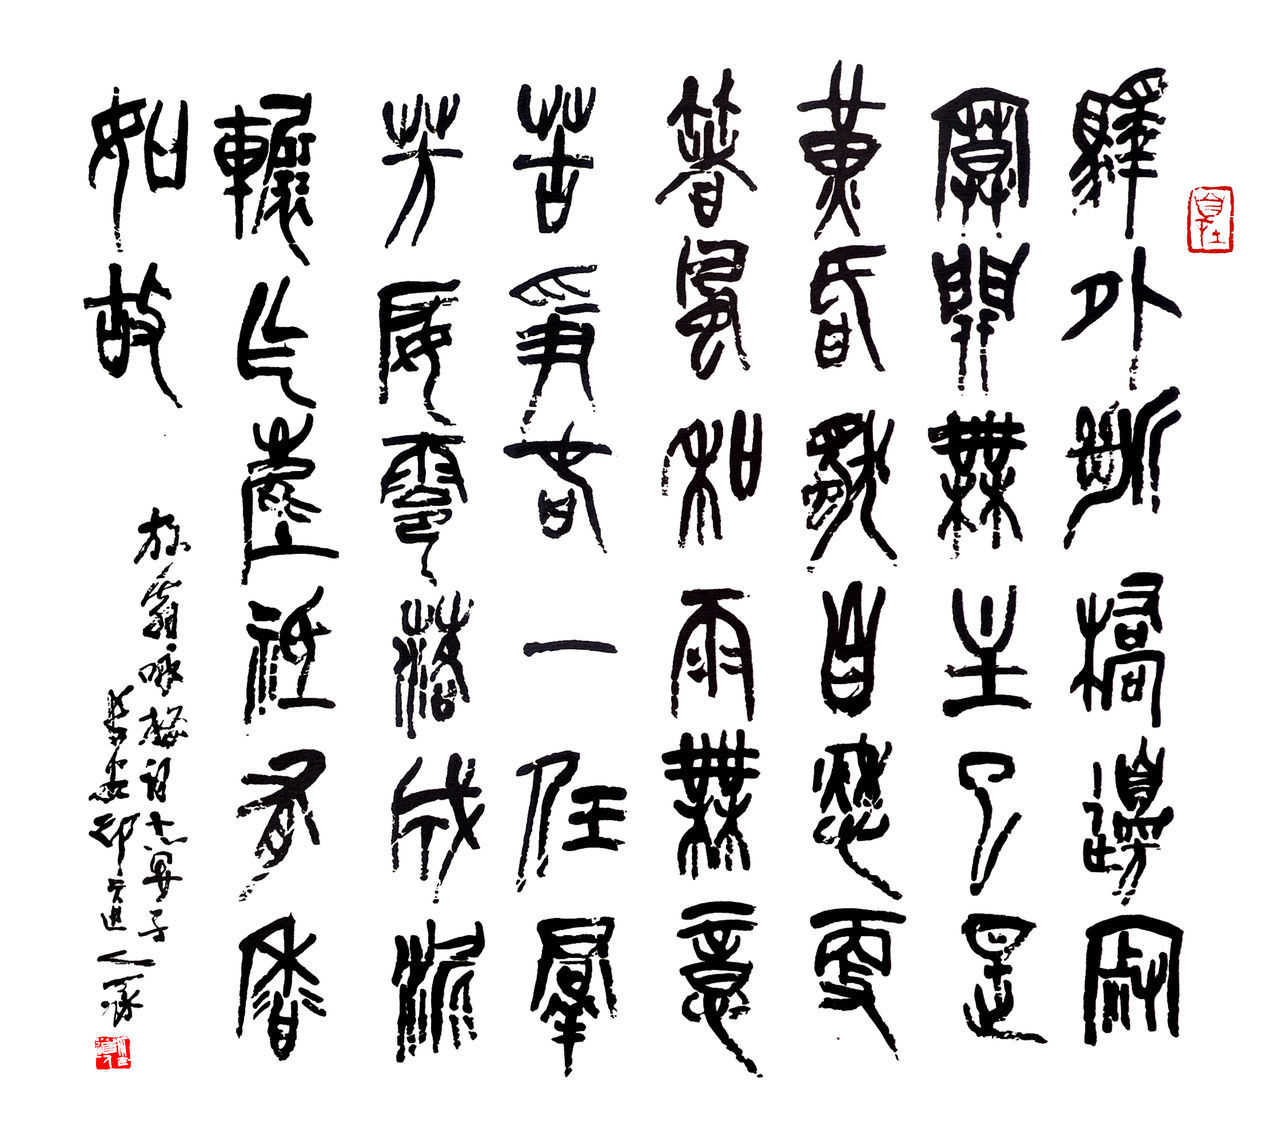 驛外斷橋邊寂
寞開無主已是
黃昏獨自愁更
著風和雨無意
苦爭春一任羣
芳妒零落成泥
輾作塵祇有香
如故
放翁咏梅詞卜算子
長安